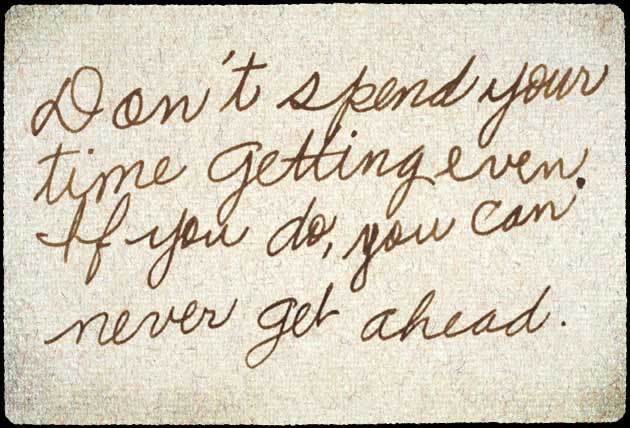 Don't spend your
time getting even.
If you do, you can
never get ahead.